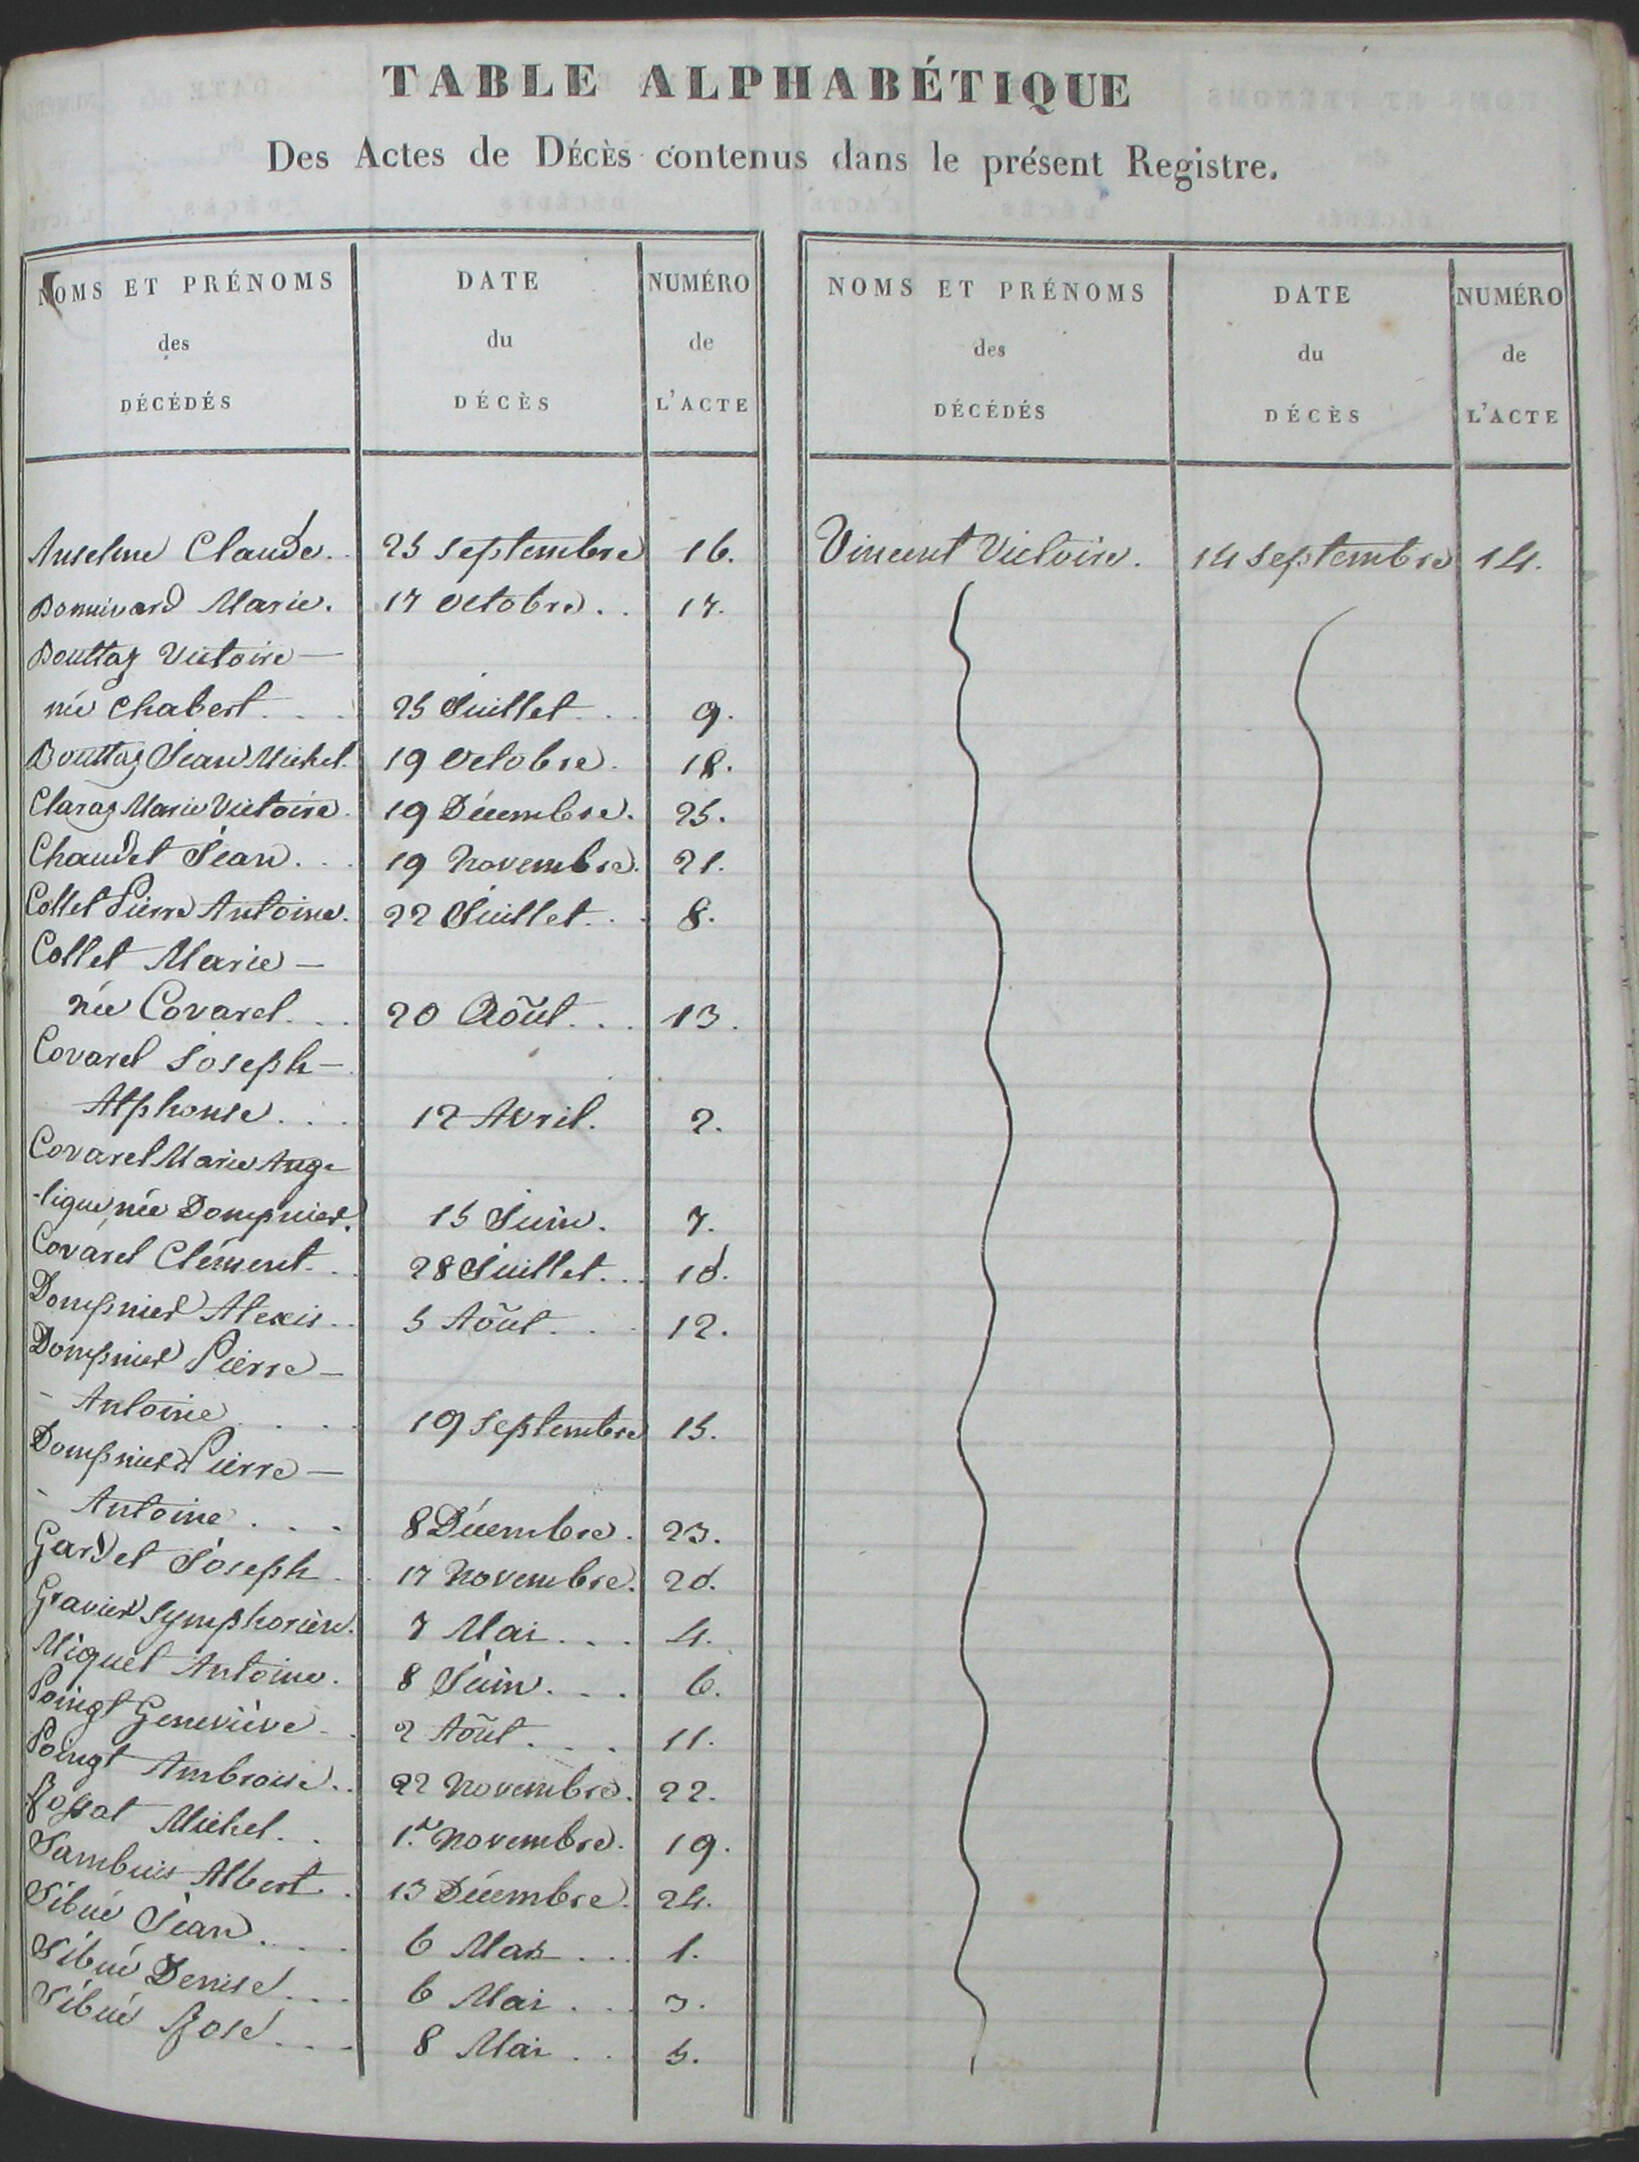 TABLE ALPHABÉTIQUE
Des Actes de Décès contenus dans le présent Registre.
NOMS ET PRÉNOMS
des
DÉCÉDÉS
DATE
du
DÉCÈS
NUMÉRO
de
L'ACTE
Anselme Claude. 25 septembre 16.
Bonnivard Marie. 17 octobre. . 17.
Bouttaz Victoire —
née Chabert. . . 25 Juillet. . . 9.
Bouttaz Jean Michel. 19 octobre. 18.
Claraz Marie Victoire. 19 Décembre. 25.
Chaudet Jean. . . 19 Novembre. 21.
Collet Pierre Antoine. 22 Juillet. . . 8.
Collet Marie —
née Covarel. . . 20 Août. . . 13.
Covarel Joseph —
Alphonse. . . 12 Avril. 2.
Covarel Marie Angé
-lique née Dompnier. 15 Juin. 7.
Covarel Clément. . . 28 Juillet. . . 10.
Dompnier Alexis. . 5 Août. . . 12.
Dompnier Pierre —
- Antoine. . . . 19 septembre 15.
Dompnier Pierre —
- Antoine. . . . 8 Décembre. 23.
Gardet Joseph. . 17 Novembre. 20.
Gravier Symphorien. 7 Mai. . . 4.
Miquet Antoine. 8 Juin. . . 6.
Poingt Geneviève. . 2 Août. . . . 11.
Poingt Ambroise. . 22 Novembre. 22.
Rossat Michel. . . 1.er Novembre. 19.
Sambuis Albert. . 13 Décembre. 24.
Sibué Jean. . . . 6 Mars. . . 1.
Sibué Denise. . . 6 Mai. . . 3.
Sibué Rose. . . . 8 Mai. . . 5.
NOMS ET PRÉNOMS
des
DÉCÉDÉS
DATE
du
DÉCÈS
NUMÉRO
de
L'ACTE
Vincent Victoire. 14 septembre 14.